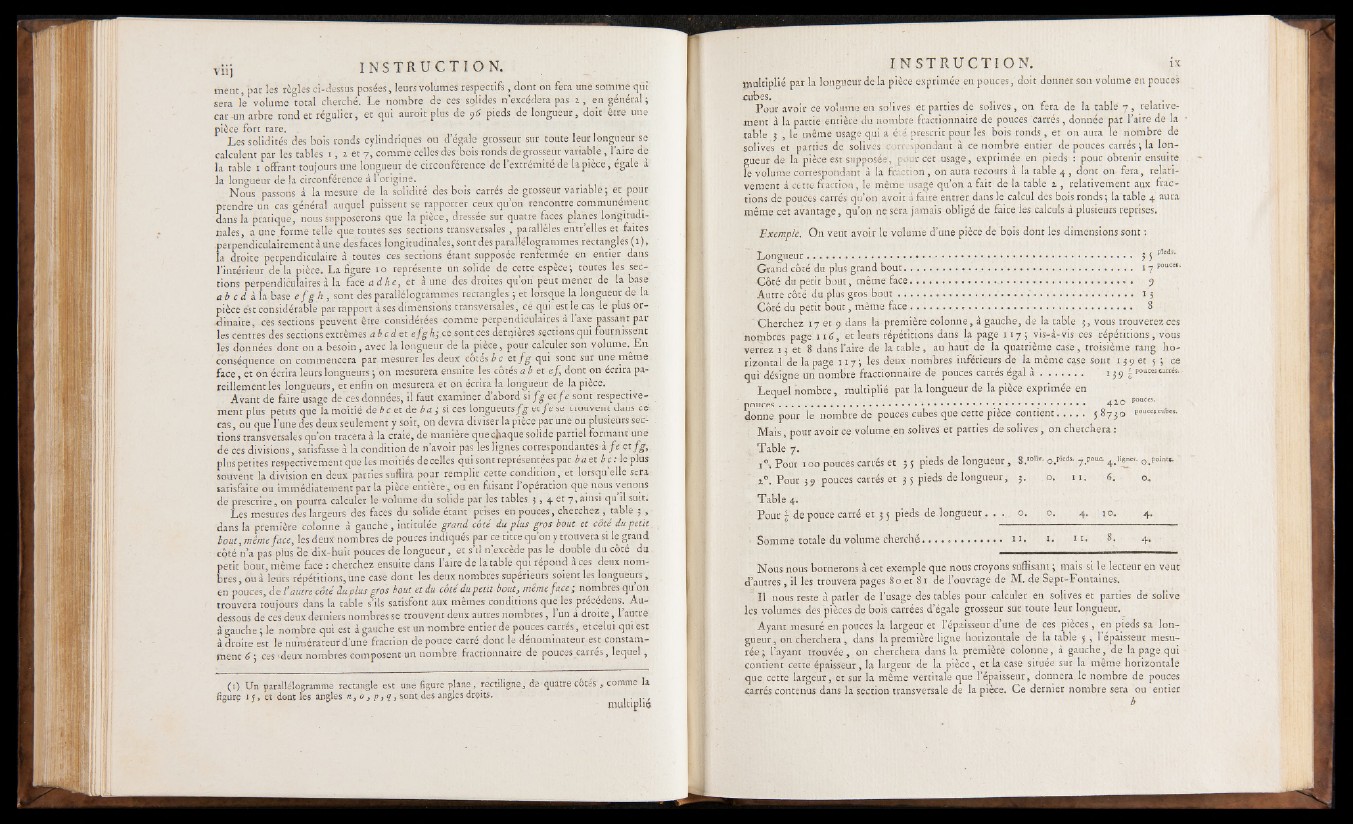 viij INSTRUCTION.
ment, par les règles ci-dessus posées, leurs volumes respectifs, dont on fera une somme qui
sera le volume total cherché. Le nombre de ces solides n'excédera pas 2, en général;
car un arbre rond et régulier, et qui auroit plus de 96 pieds de longueur, doit être une
pièce fort rare.
Les solidités des bois ronds cylindriques ou d'égale grosseur sur toute leur longueur se
calculent par les tables 1, 2 et 7, comme celles des bois ronds de grosseur variable, l'aire de
la table 1 offrant toujours une longueur de circonférence de l'extrémité de la pièce, égale à
la longueur de la circonférence à l'origine.
Nous passons à la mesure de la solidité des bois carrés de grosseur variable; et pour
prendre un cas général auquel puissent se rapporter ceux qu'on rencontre communément
dans la pratique, nous supposerons que la pièce, dressée sur quatre faces planes longitudi-
nales, a une forme telle que toutes ses sections transversales, parallèles entr'elles et faites
perpendiculairement à une des faces longitudinales, sont des parallélogrammes rectangles (1),
la droite perpendiculaire à toutes ces sections étant supposée renfermée en entier dans
l'intérieur de la pièce. La figure 10 représente un solide de cette espèce; toutes les sec-
tions perpendiculaires à la face a d h e, et à une des droites qu'on peut mener de la base
a b c d à la base e f g h, sont des parallélogrammes rectangles; et lorsque la longueur de la
pièce est considérable par rapport à ses dimensions transversales, ce qui est le cas le plus or-
dinaire, ces sections peuvent être considérées comme perpendiculaires à l'axe passant par
les centres des sections extrêmes a b c d et e f g h; ce sont ces dernières sections qui fournissent
les données dont on a besoin, avec la longueur de la pièce, pour calculer son volume. En
conséquence on commencera par mesurer les deux côtés b c et f g qui sont sur une même
face, et on écrira leurs longueurs; on mesurera ensuite les côtés a b et e f, dont on écrira pa-
reillement les longueurs, et enfin on mesurera et on écrira la longueur de la pièce.
Avant de faire usage de ces données, il faut examiner d'abord si f g et f e sont respective-
ment plus petits que la moitié de b c et de b a; si ces longueurs f g et f e se trouvent dans ce
cas, ou que l'une des deux seulement y soit, on devra diviser la pièce par une ou plusieurs sec-
tions transversales qu'on tracera à la craie, de manière que chaque solide partiel formant une
de ces divisions, satisfasse à la condition de n'avoir pas les lignes correspondantes à f e et f g,
plus petites respectivement que les moitiés de celles qui sont représentées par b a et b c: le plus
souvent la division en deux parties suffira pour remplir cette condition, et lorsqu'elle sera
satisfaite ou immédiatement par la pièce entière, ou en faisant l'opération que nous venons
de prescrire, on pourra calculer le volume du solide par les tables 3, 4 et 7, ainsi qu'il suit.
Les mesures des largeurs des faces du solide étant prises en pouces, cherchez, table 3,
dans la première colonne à gauche, intitulée grand côté du plus gros bout et côté du petit
bout, même face, les deux nombres de pouces indiqués par ce titre qu'on y trouvera si le grand
côté n'a pas plus de dix-huit pouces de longueur, et s'il n'excède pas le double du côté du
petit bout, même face: cherchez ensuite dans l'aire de la table qui répond à ces deux nom-
bres, ou à leurs répétitions, une case dont les deux nombres supérieurs soient les longueurs,
en pouces, de l'autre côté du plus gros bout et du côté du petit bout, même face; nombres qu'on
trouvera toujours dans la table s'ils satisfont aux mêmes conditions que les précédens. Au-
dessous de ces deux derniers nombres se trouvent deux autres nombres, l'un à droite, l'autre
à gauche; le nombre qui est à gauche est un nombre entier de pouces carrés, et celui qui est
à droite est le numérateur d'une fraction de pouce carré dont le dénominateur est constam-
ment 6; ces deux nombres composent un nombre fractionnaire de pouces carrés, lequel,
(1) Un parallélogramme rectangle est une figure plane, rectiligne, de quatre côtés, comme la
figure 15, et dont les angles n, o, p, q, sont des angles droits.
multiplié
INSTRUCTION. ix
multiplié par la longueur de la pièce exprimée en pouces, doit donner son volume en pouces
cubes.
Pour avoir ce volume en solives et parties de solives, on fera de la table 7, relative-
ment à la partie entière du nombre fractionnaire de pouces carrés, donnée par l'aire de la
table 3, le même usage qui a été prescrit pour les bois ronds, et on aura le nombre de
solives et parties de solives correspondant à ce nombre entier de pouces carrés; la lon-
gueur de la pièce est supposée, pour cet usage, exprimée en pieds: pour obtenir ensuite
le volume correspondant à la fraction, on aura recours à la table 4, dont on fera, relati-
vement à cette fraction, le même usage qu'on a fait de la table 2, relativement aux frac-
tions de pouces carrés qu'on avoit à faire entrer dans le calcul des bois ronds; la table 4 aura
même cet avantage, qu'on ne sera jamais obligé de faire les calculs à plusieurs reprises.
Exemple. On veut avoir le volume d'une pièce de bois dont les dimensions sont:
Longueur . . . . . 35 pieds.
Grand côté du plus grand bout . . . . . 17 pouces.
Côté du petit bout, même face . . . . . 9
Autre côté du plus gros bout . . . . . 13
Côté du petit bout, même face . . . . . 8
Cherchez 17 et 9 dans la première colonne, à gauche, de la table 3, vous trouverez ces
nombres page 116, et leurs répétitions dans la page 117; vis-à-vis ces répétitions, vous
verrez 13 et 8 dans l'aire de la table, au haut de la quatrième case, troisième rang ho-
rizontal de la page 117; les deux nombres inférieurs de la même case sont 139 et 5; ce
qui désigne un nombre fractionnaire de pouces carrés égal à . . . . . 139 5/6 pouces carrés.
Lequel nombre, multiplié par la longueur de la pièce exprimée en
pouces . . . . . 420 pouces.
donne pour le nombre de pouces cubes que cette pièce contient . . . . . 58730 pouces cubes.
Mais, pour avoir ce volume en solives et parties de solives, on cherchera:
Table 7.
1°. Pour 100 pouces carrés et 35 pieds de longueur, 8.soliv. 0.pieds. 7.pouc. 4.lignes. 0.points.
2°. Pour 39 pouces carrés et 35 pieds de longueur, 3. 0. 11. 6. 0.
Table 4.
Pour 5/6 de pouce carré et 35 pieds de longueur . . . 0. 0. 4. 10. 4.
Somme totale du volume cherché . . . . . 11. 1. 11. 8. 4.
Nous nous bornerons à cet exemple que nous croyons suffisant; mais si le lecteur en veut
d'autres, il les trouvera pages 80 et 81 de l'ouvrage de M. de Sept-Fontaines.
Il nous reste à parler de l'usage des tables pour calculer en solives et parties de solive
les volumes des pièces de bois carrées d'égale grosseur sur toute leur longueur.
Ayant mesuré en pouces la largeur et l'épaisseur d'une de ces pièces, en pieds sa lon-
gueur, on cherchera, dans la première ligne horizontale de la table 5, l'épaisseur mesu-
rée; l'ayant trouvée, on cherchera dans la première colonne, à gauche, de la page qui
contient cette épaisseur, la largeur de la pièce, et la case située sur la même horizontale
que cette largeur, et sur la même vertitale que l'épaisseur, donnera le nombre de pouces
carrés contenus dans la section transversale de la pièce. Ce dernier nombre sera ou entier
b